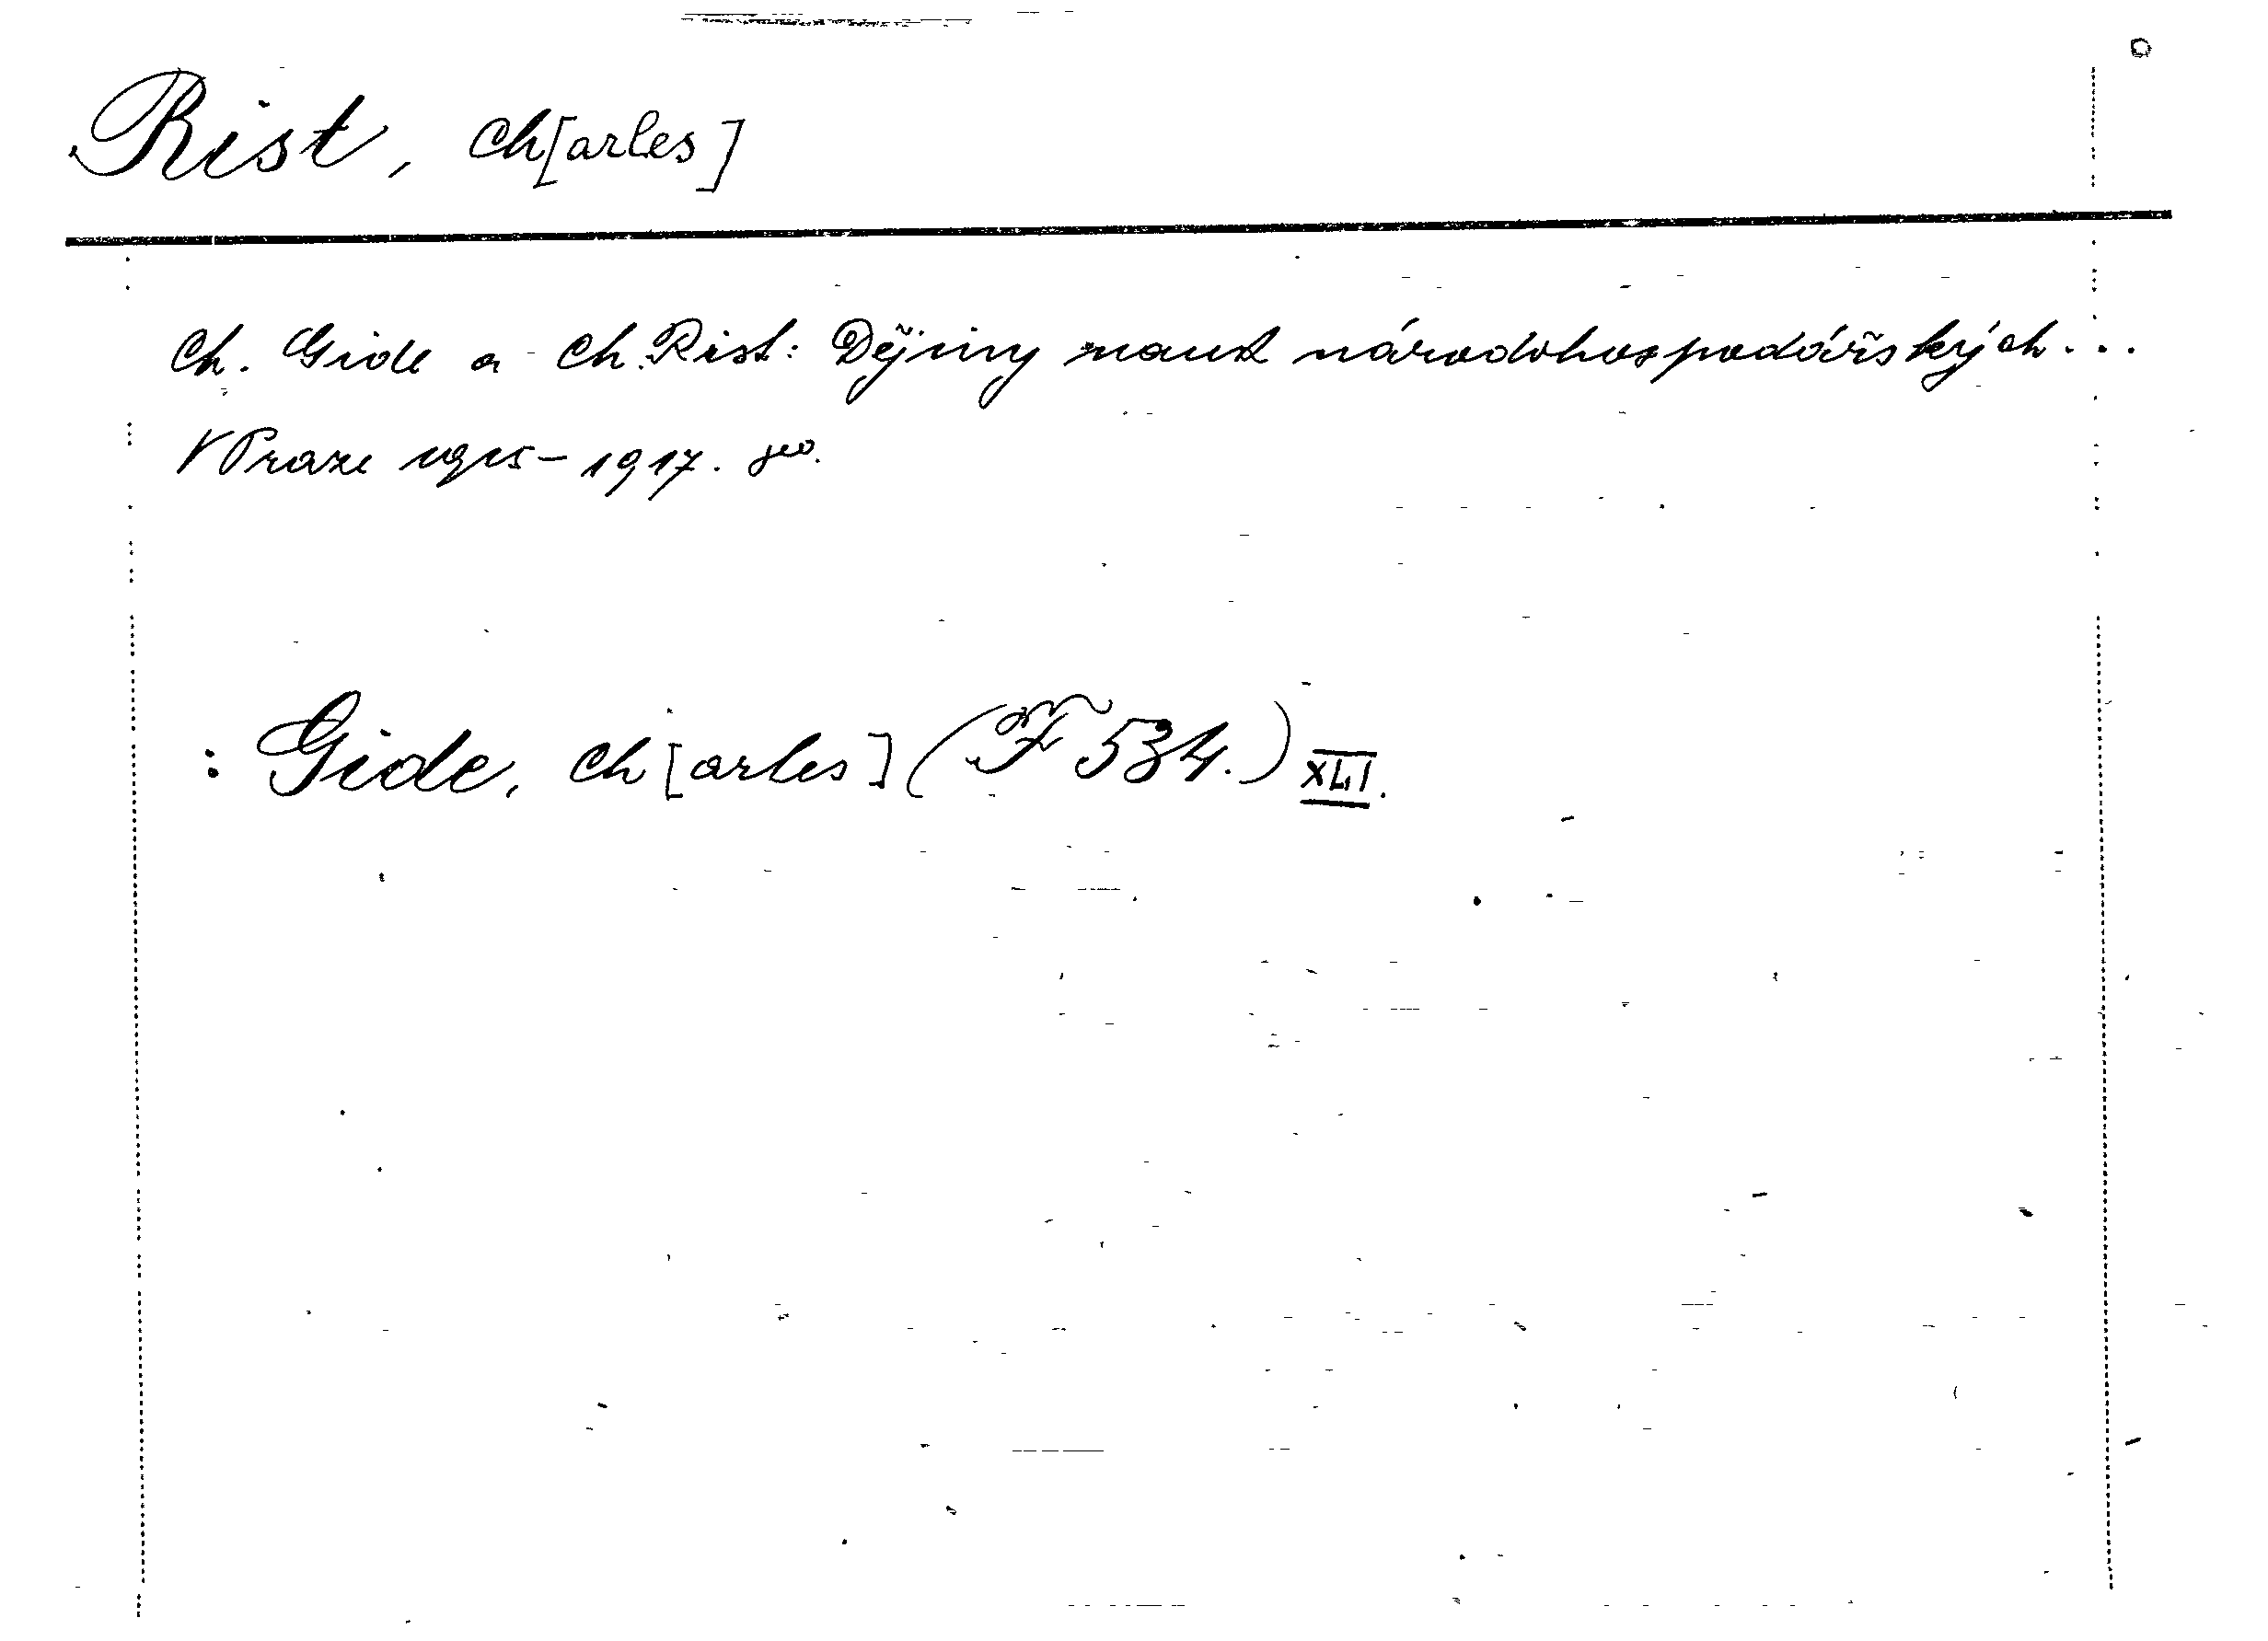 Rist, Ch[arles]
Ch. Gide a Ch. Rist: Dějiny nauk národohospodářských...
V Praze 1915-1917. 8⁰.
: Gide, Ch[arles] (F 534.) XLI.